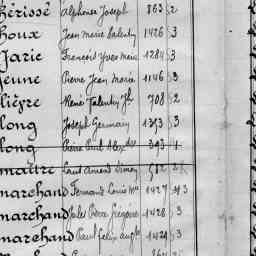 hérissé Alphonse Joseph 863 2
houx Jean Marie Valentin 1426 3
Jarie François Yves Marie 1284 3
jeune Pierre Jean Marie 1146 3
lièvre René Valentin Jh 708 2
long Joseph Germain 1353 3
long Pierre Paul Alex 393 1
maître Paul Amand 512
marchand Fernand Louis Mie 1427 3
marchand Jules Pierre Grégoire 1428 3
marchand Paul Félix Augte 1429 3